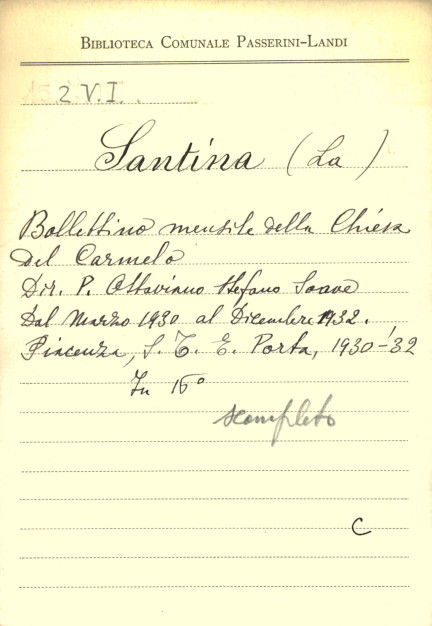 BIBLIOTECA COMUNALE PASSERINI-LANDI
2 V.I.
Santina (La)
Bollettino mensile della Chiesa
del Carmelo
Dir. P. Ottaviano Stefano Soave
Dal Marzo 1930 al Dicembre 1932.
Piacenza, S. T. E. Porta, 1930-'32
In 16°
scompleto
C